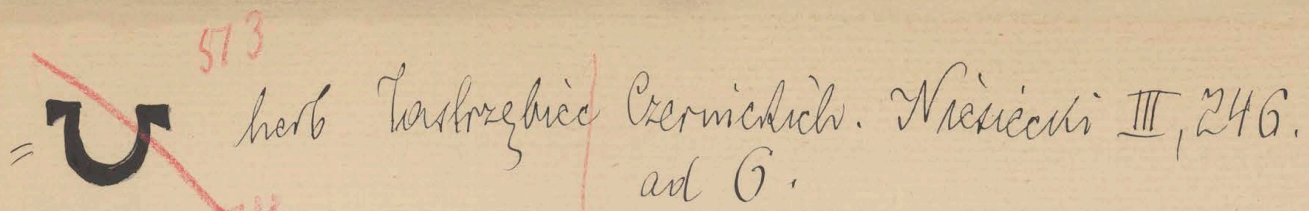 573
= herb Jastrzębiec Czernickich. Niesiecki III, 246.
ad 6.